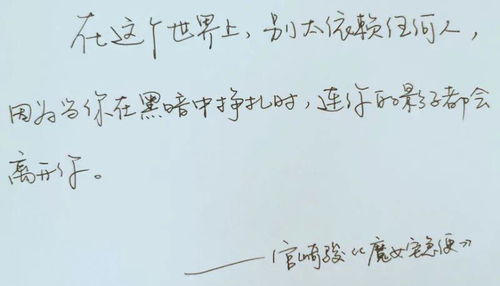 在这个世界上，别太依赖任何人，
因为当你在黑暗中挣扎时，连你的影子都会
离开你。
——宫崎骏《魔女宅急便》